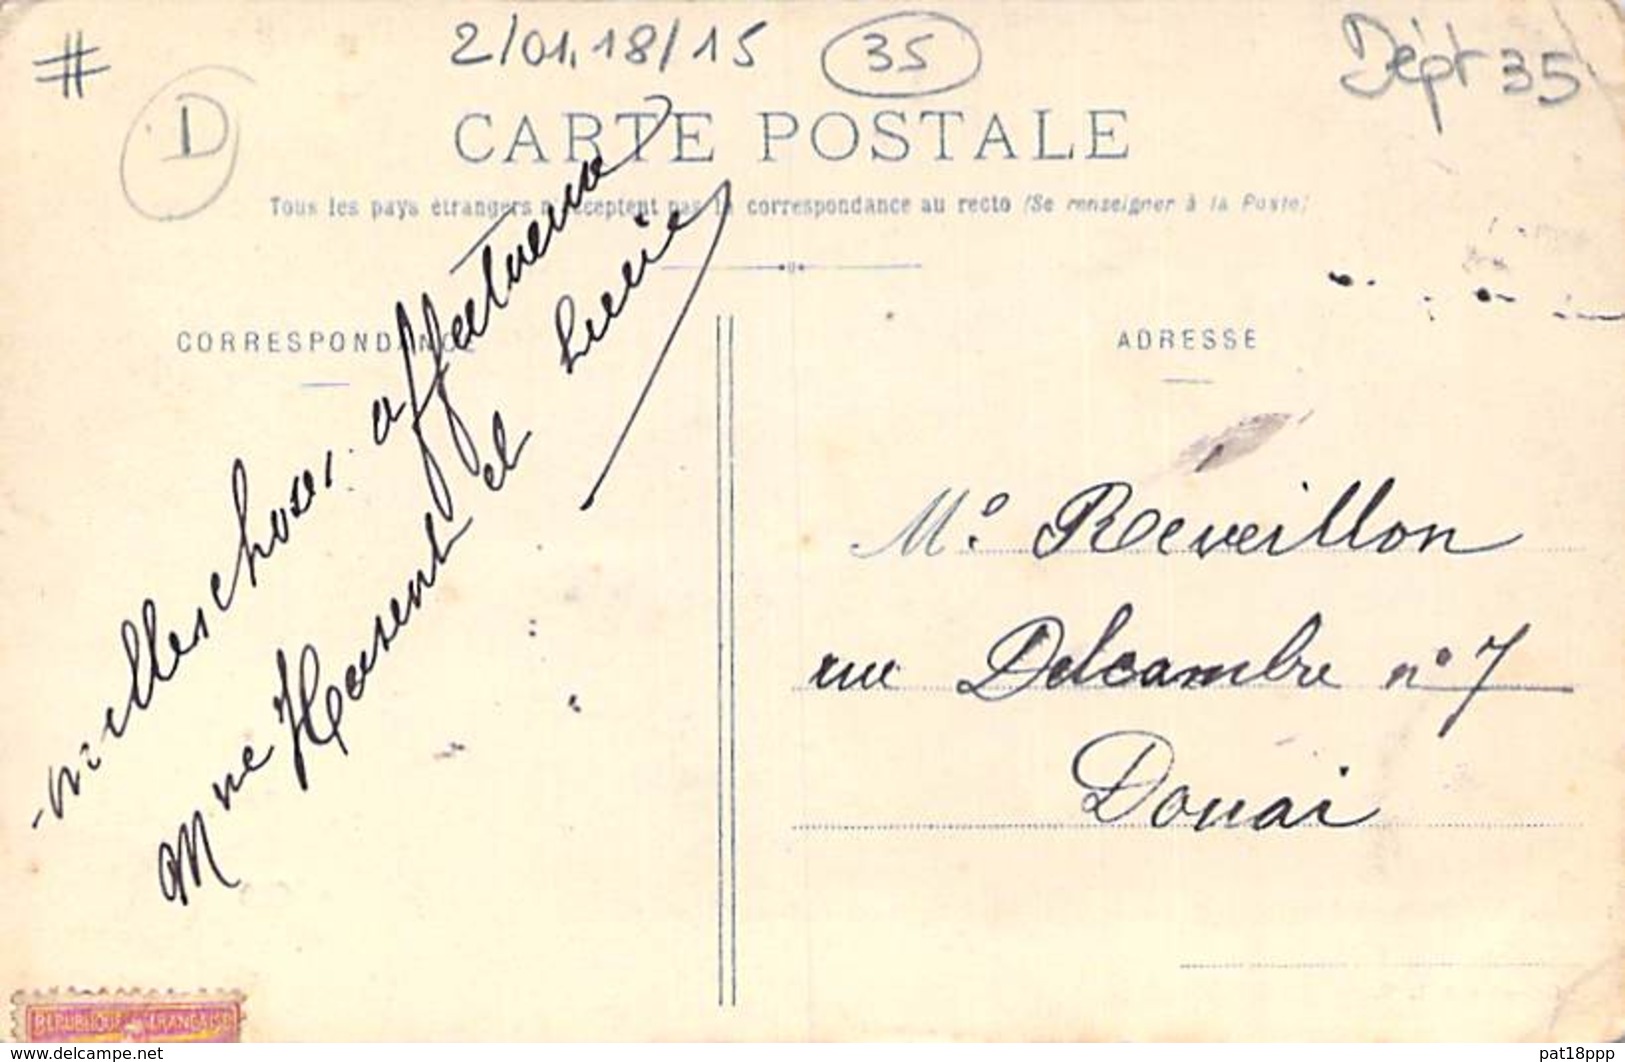 #
2/01.18/15
35
Dépt 35
D
CARTE POSTALE
Tous les pays étrangers n'acceptent pas la correspondance au recto (Se renseigner à la Poste)
CORRESPONDANCE
milles choses affectueuse
Mme et Lucie
ADRESSE
Mr. Réveillon
rue Delcambre n° 7
Douai
REPUBLIQUE FRANCAISE
www.delcampe.net
pat18ppp